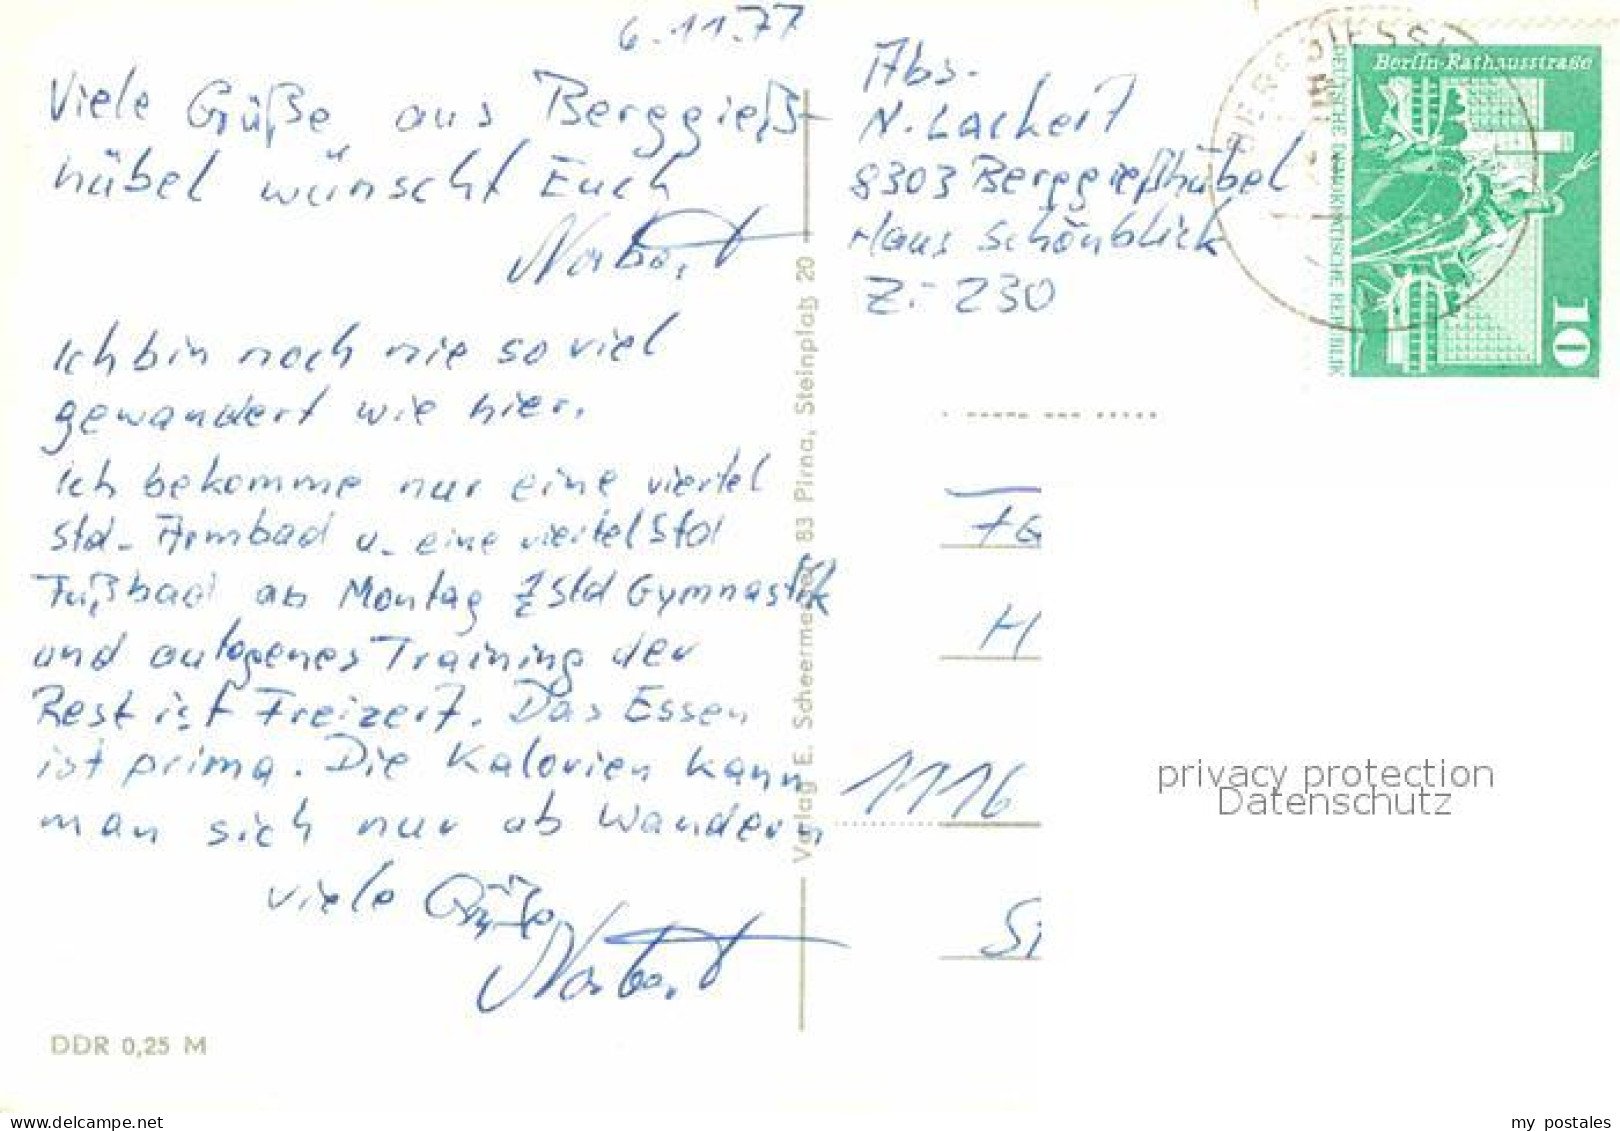 6.11.77
Viele Grüße aus Berggieß-
hübel wünscht Euch
Norbert
Ich bin noch nie so viel
gewandert wie hier.
Ich bekomme nur eine viertel
Std. Armbad u. eine viertel Std
Fußbad ab Montag ½ Std Gymnastik
und autogenes Training der
Rest ist Freizeit. Das Essen
ist prima. Die Kalorien kann
man sich nur ab wandern
viele Grüße
Norbert
DDR 0,25 M
Verlag E. Scheermesser, 83 Pirna, Steinplatz 20
Abs.
N. Lackert
8303 Berggießhübel
Haus Schönblick
Zi. 230
Berlin-Rathausstraße
DEUTSCHE DEMOKRATISCHE REPUBLIK
10
H
1116
privacy protection
Datenschutz
my postales